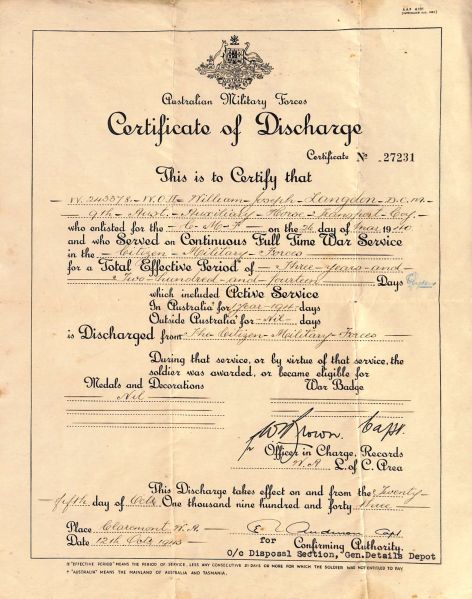 A.A.F. A131
Australian Military Forces
Certificate of Discharge
Certificate No. 27231
This is to Certify that
W.243378 - W.O.II - William - Joseph - Langdon - D.C.M.
9th - Aust. - Auxiliary - Horse - Transport - Coy.
who enlisted for the C.M.F. on the day of 1940
and who Served on Continuous Full Time War Service
in the Citizen - Military - Forces
for a Total Effective Period of Three - Years - and
Two - hundred - and - fourteen Days
which included Active Service
On Australia† for 1 Year - 194 days
Outside Australia† for - Nil - days
is Discharged from The - Citizen - Military - Forces
During that service, or by virtue of that service, the
soldier was awarded, or became eligible for
Medals and Decorations War Badge
Nil
Brown. Capt.
Officer in Charge, Records
W.A. L. of C. Area
This Discharge takes effect on and from the Twenty-
fifth day of One thousand nine hundred and forty three
Place Claremont W.A. Capt
Date 12th 1943 for Confirming Authority.
O/c Disposal Section, Gen. Details Depot
"EFFECTIVE PERIOD" MEANS THE PERIOD OF SERVICE, LESS ANY CONSECUTIVE 21 DAYS OR MORE FOR WHICH THE SOLDIER WAS NOT ENTITLED TO PAY.
† "AUSTRALIA" MEANS THE MAINLAND OF AUSTRALIA AND TASMANIA.